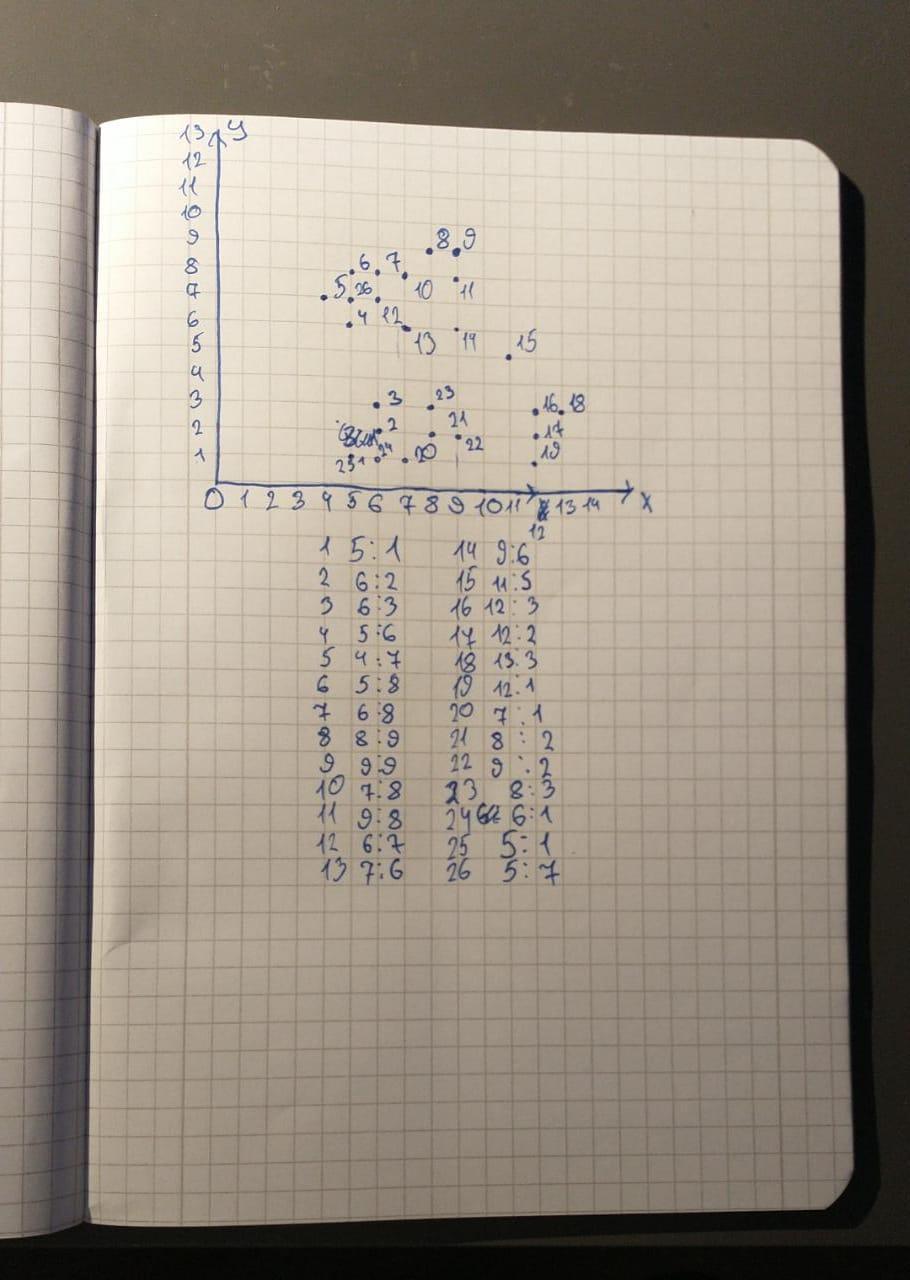 13 y
12
11
10
9 8 9
8 6 7
7 5 26 10 11
6 4 12
5 13 14 15
4
3 3 23 16 18
2 2 21 22 17
1 25 1 24 20 19
0 1 2 3 4 5 6 7 8 9 10 11 13 14 x
12
1 5:1 14 9:6
2 6:2 15 11:5
3 6:3 16 12:3
4 5:6 17 12:2
5 4:7 18 13:3
6 5:8 19 12:1
7 6:8 20 7:1
8 8:9 21 8:2
9 9:9 22 9:2
10 7:8 23 8:3
11 9:8 24 6:1
12 6:7 25 5:1
13 7:6 26 5:7